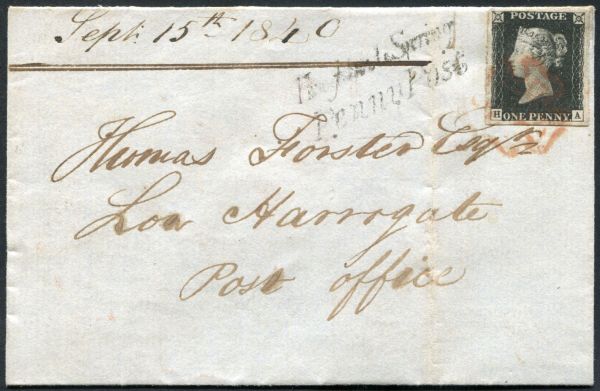 Sept: 15th 1840
Penny Post
POSTAGE
ONE PENNY
H A
Thomas Forster Esqre
Low Harrogate
Post office